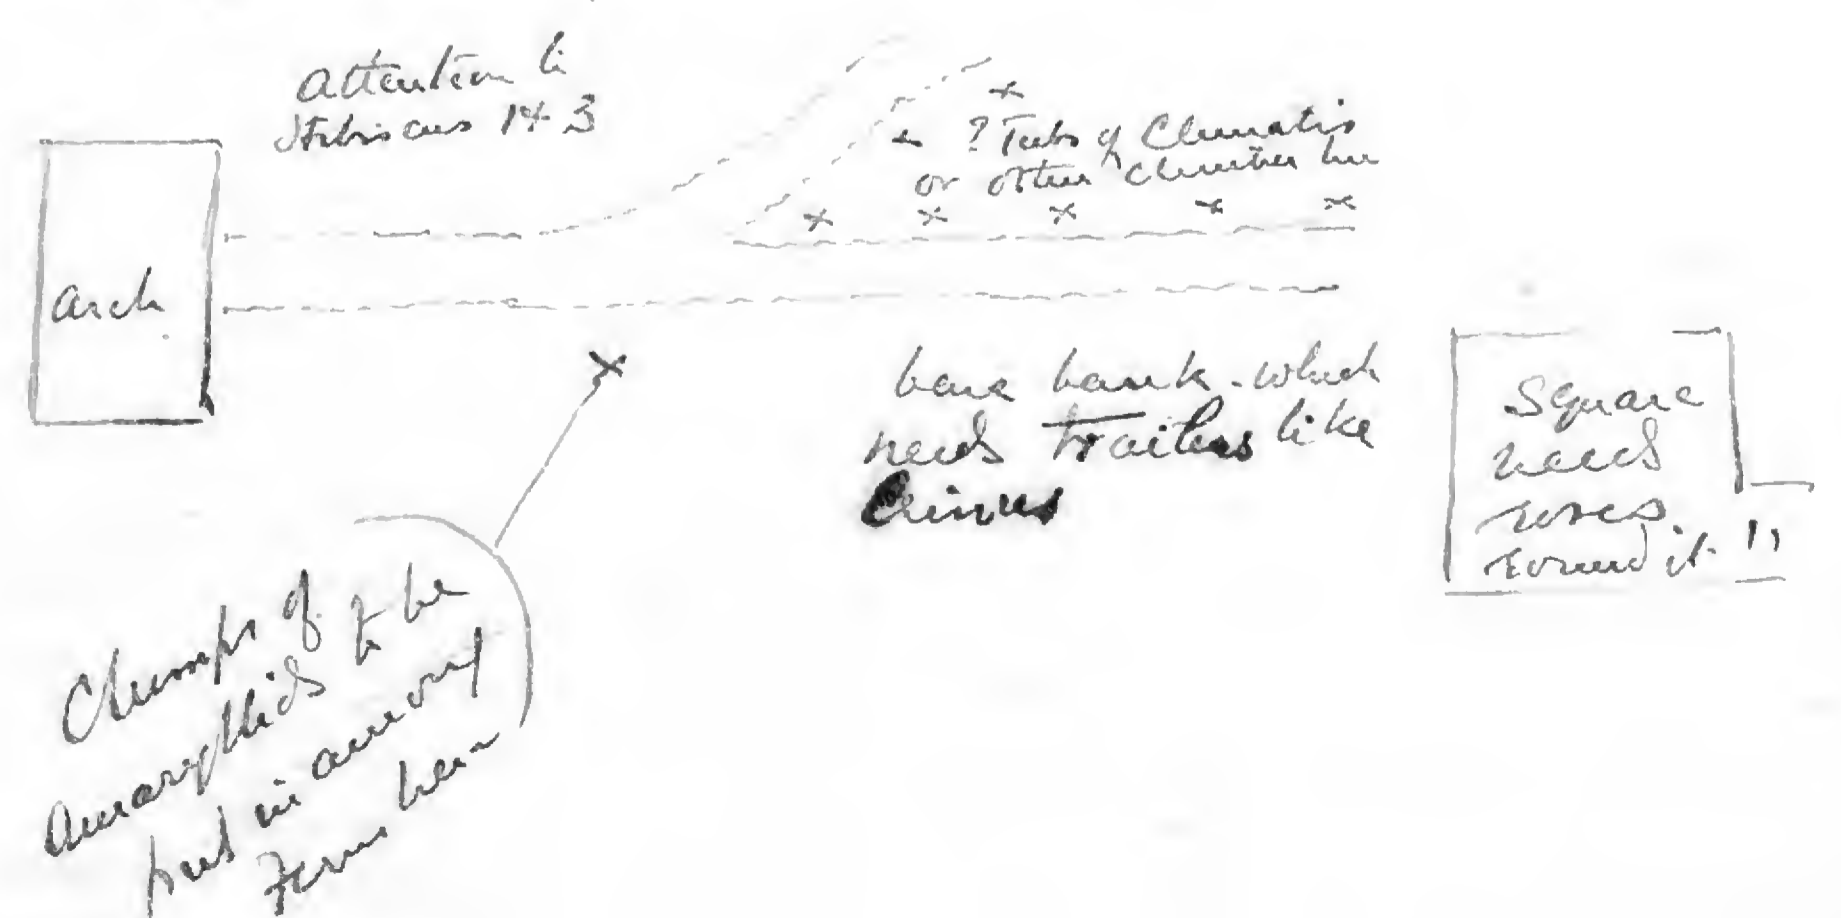 attention to
Hibiscus 1 + 3
arch
? Tubs of Clematis
or other climber here
bare bank - which
needs trailers like
square
needs
roses
round it !!
Clumps of
amaryllids to be
put in among
Ferns here